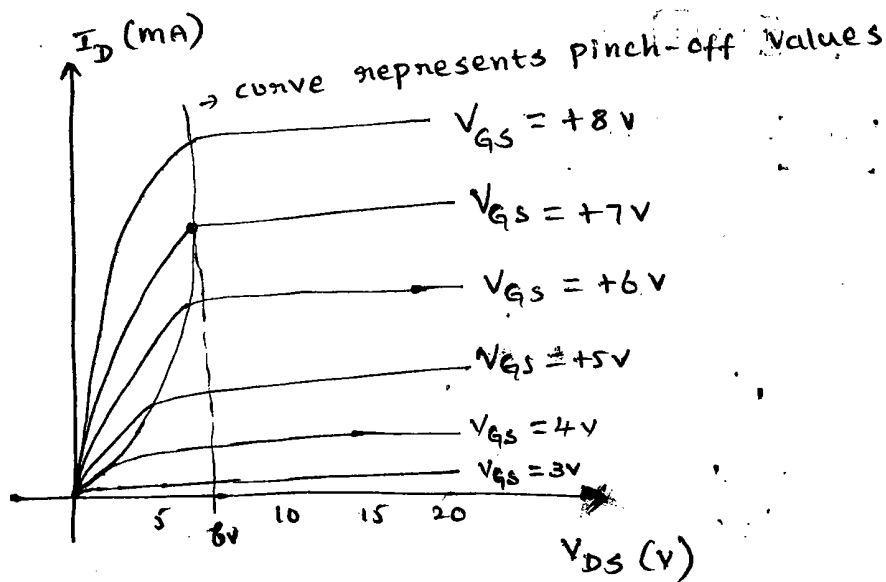 I_D (mA)
→ curve represents pinch-off values
V_GS = +8 V
V_GS = +7V
V_GS = +6 V
V_GS = +5V
V_GS = 4V
V_GS = 3V
5 6V 10 15 20
V_DS (V)